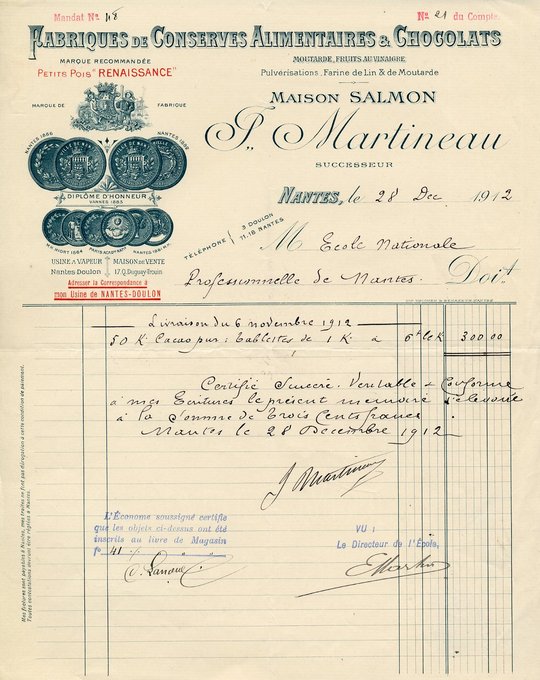 Mandat No 118
No 21 du Compte.
FABRIQUES DE CONSERVES ALIMENTAIRES & CHOCOLATS
MARQUE RECOMMANDÉE
PETITS POIS "RENAISSANCE"
MOUTARDE, FRUITS AU VINAIGRE
Pulvérisations, Farine de Lin & de Moutarde
MARQUE DE FABRIQUE
MAISON SALMON
F. Martineau
SUCCESSEUR
NANTES 1866
DIPLÔME D'HONNEUR
VANNES 1883
USINE A VAPEUR MAISON DE VENTE
Nantes Doulon 17, Q. Duguay-Trouin
Adresser la Correspondance à
mon Usine de NANTES-DOULON
NANTES, le 28 Dec 1912
TÉLÉPHONE 3 DOULON
11.18 NANTES
M Ecole Nationale
Professionnelle de Nantes. Doit
Livraison du 6 novembre 1912
50 K. Cacao pur: tablettes de 1 K. a 6f le K 300 00
Certifié Sincère, Veritable & Conforme
à mes Ecritures le présent memoire
à la Somme de Trois Cents francs
Nantes le 28 Decembre 1912
J Martineau
L'Économe soussigné certifie
que les objets ci-dessus ont été
inscrits au livre de Magasin
fo 41
VU :
Le Directeur de l'École,
Mes factures sont payables à Nantes, mes traites ne font pas dérogation à cette condition de paiement.
Toutes contestations devront être réglées à Nantes.